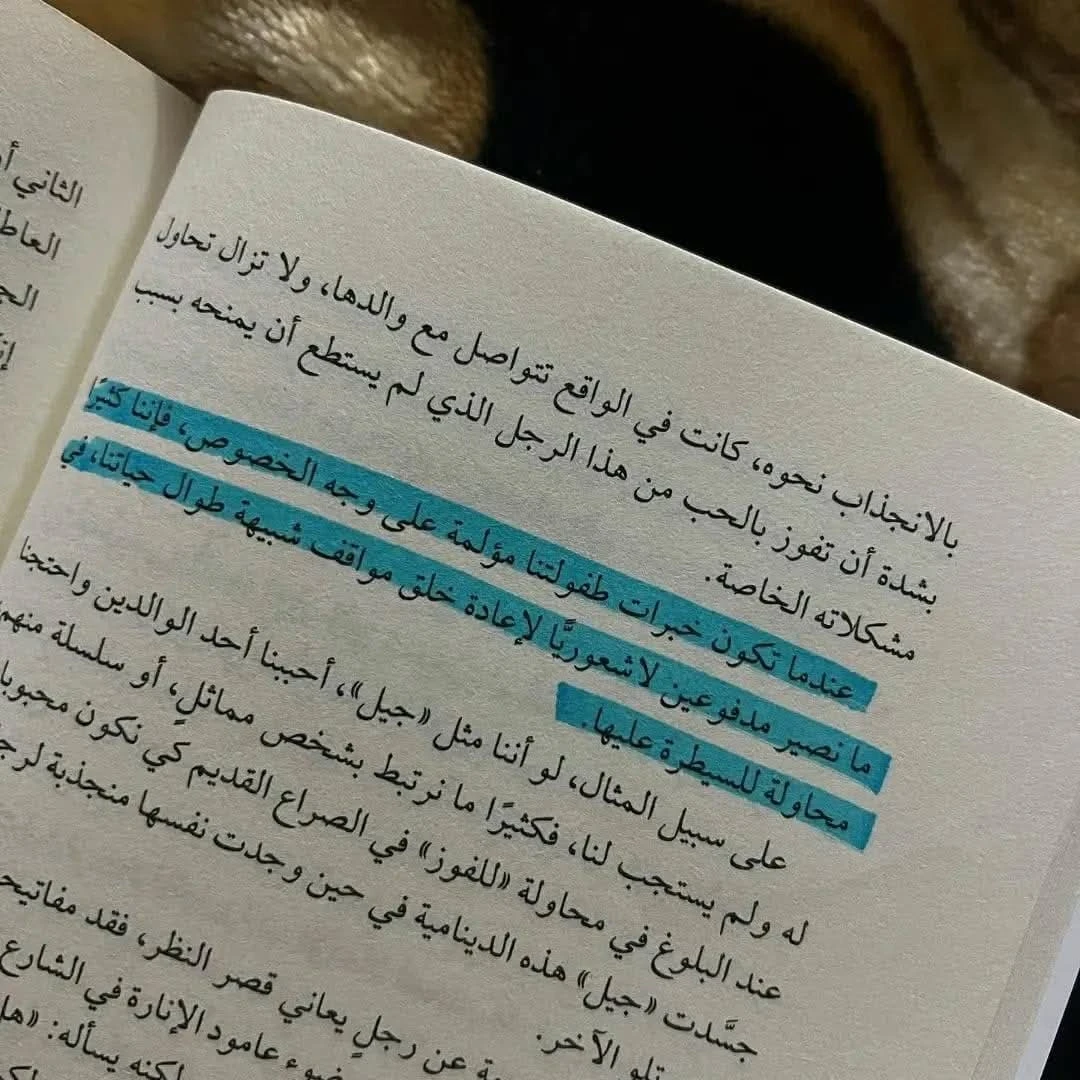 الثاني
بالانجذاب نحوه، كانت في الواقع تتواصل مع والدها، ولا تزال تحاول
بشدة أن تفوز بالحب من هذا الرجل الذي لم يستطع أن يمنحه بسبب
مشكلاته الخاصة.
عندما تكون خبرات طفولتنا مؤلمة على وجه الخصوص، فإننا كثيرًا
ما نصير مدفوعين لاشعوريًّا لإعادة خلق مواقف شبيهة طوال حياتنا، في
محاولة للسيطرة عليها.
على سبيل المثال، لو أننا مثل «جيل»، أحببنا أحد الوالدين واحتجنا
له ولم يستجب لنا، فكثيرًا ما نرتبط بشخص مماثلٍ، أو سلسلة منهم
عند البلوغ في محاولة «للفوز» في الصراع القديم كي نكون
جسَّدت «جيل» هذه الدينامية في حين وجدت نفسها منجذبة
تلو الآخر.
عن رجلٍ يعاني قصر النظر، فقد
عامود الإنارة في الشارع
يسأله: